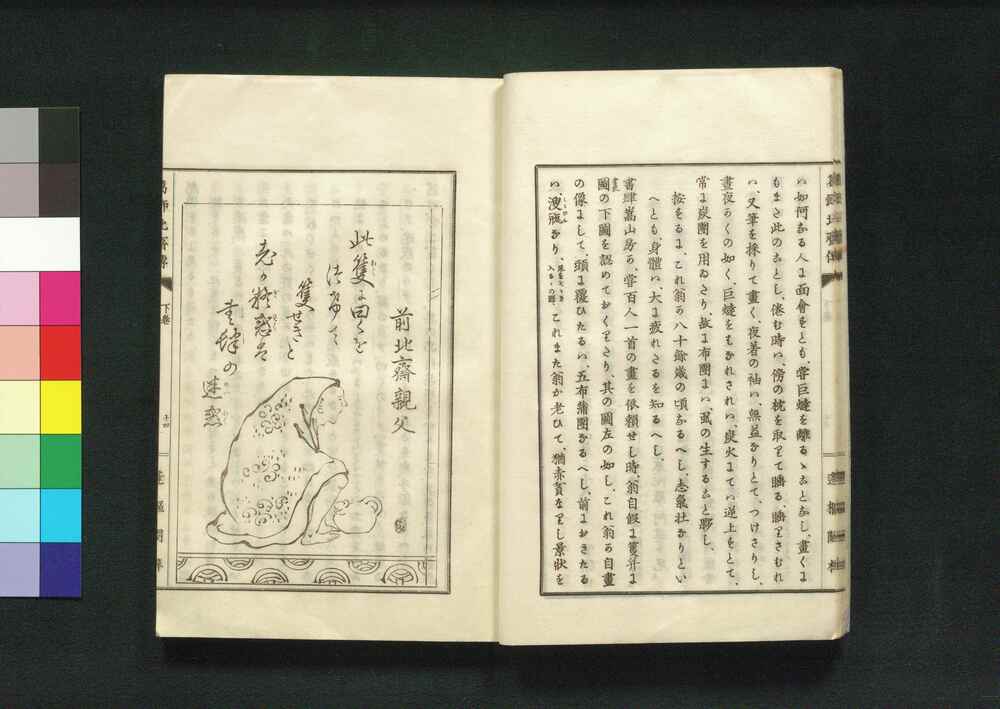 い、如何なる人に面會をとも、嘗巨燵を離るゝことなし、畫くに
もまた此のことし、倦む時い、傍の枕を取りて睡る、睡りさむれ
い、又筆を採りて畫く、夜着の袖い、無益なりとて、つけさりし、
晝夜かくの如く、巨燵をもなれされい、炭火にてい逆上をとて、
常に炭團を用ゐたり、故に布團にい、虱の生すること夥し、
按をるに、これ翁の八十餘歳の頃なるへし、志氣壮なりとい
へとも、身體い、大に疲れたるを知るへし、
書肆嵩山房の、嘗百人一首の畫を依頼せし時、翁自假に篗并に
畫圖の下圖を認めておくりたり、其の圖左の如し、これ翁の自畫
の像にして、頭に覆ひたるい、五布蒲團なるへし、前におきたる
い、溲瓶なり、これまた翁か老ひて、猶赤貧なりし景状を
葛飾北齋傳
下卷
十四
蓬樞閣梓
前北齋親父
此篗に曰くを
篗せきと
老の
書肆の
迷惑